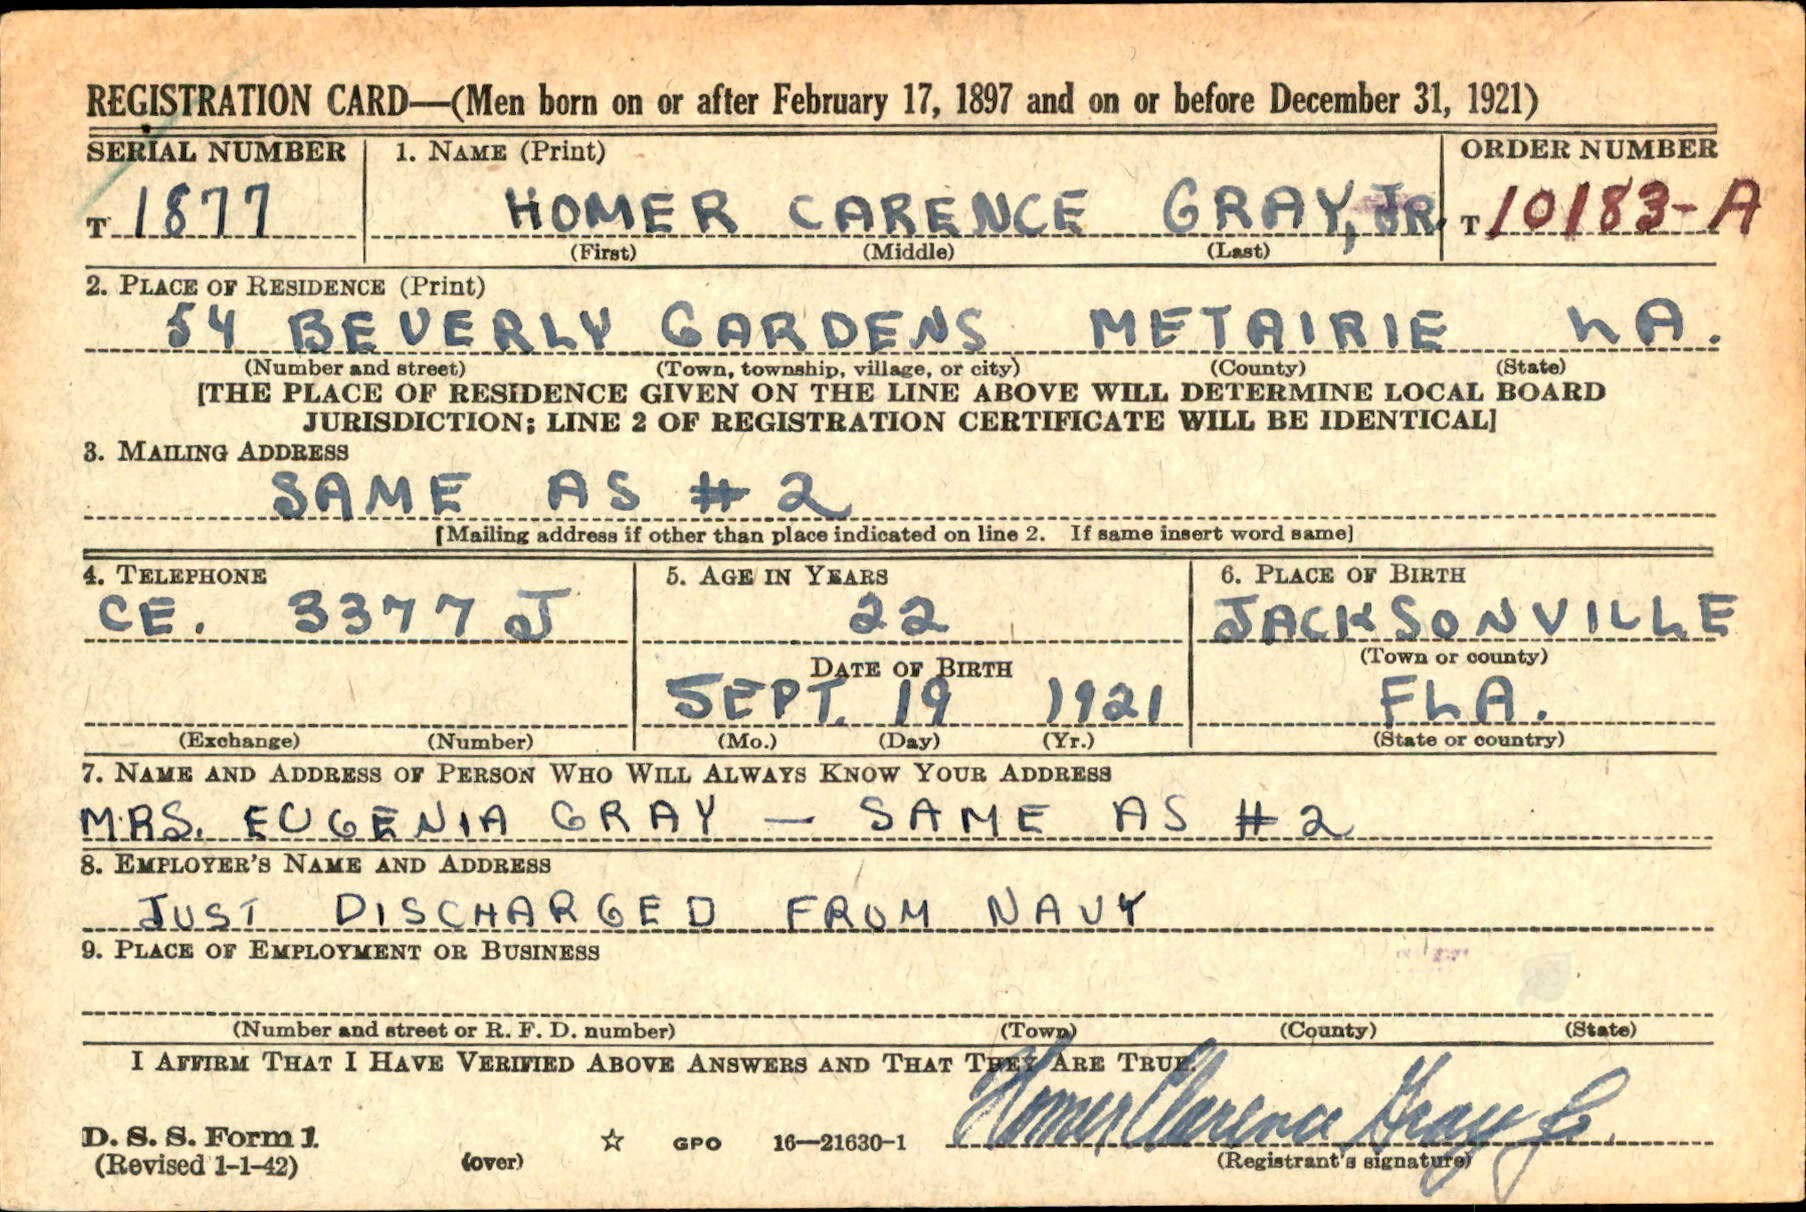 REGISTRATION CARD—(Men born on or after February 17, 1897 and on or before December 31, 1921)
SERIAL NUMBER 1. NAME (Print) ORDER NUMBER
T 1877 HOMER CARENCE GRAY, JR. T 10183-A
(First) (Middle) (Last)
2. PLACE OF RESIDENCE (Print)
54 BEVERLY GARDENS METAIRIE LA.
(Number and street) (Town, township, village, or city) (County) (State)
[THE PLACE OF RESIDENCE GIVEN ON THE LINE ABOVE WILL DETERMINE LOCAL BOARD
JURISDICTION; LINE 2 OF REGISTRATION CERTIFICATE WILL BE IDENTICAL]
3. MAILING ADDRESS
SAME AS # 2
[Mailing address if other than place indicated on line 2. If same insert word same]
4. TELEPHONE 5. AGE IN YEARS 6. PLACE OF BIRTH
CE. 3377 J 22 JACKSONVILLE
(Town or county)
DATE OF BIRTH
SEPT. 19 1921 FLA.
(Exchange) (Number) (Mo.) (Day) (Yr.) (State or country)
7. NAME AND ADDRESS OF PERSON WHO WILL ALWAYS KNOW YOUR ADDRESS
MRS. EUGENIA GRAY — SAME AS # 2
8. EMPLOYER'S NAME AND ADDRESS
JUST DISCHARGED FROM NAVY
9. PLACE OF EMPLOYMENT OR BUSINESS
(Number and street or R. F. D. number) (Town) (County) (State)
I AFFIRM THAT I HAVE VERIFIED ABOVE ANSWERS AND THAT THEY ARE TRUE.
Homer Clarence Gray Jr.
D. S. S. Form 1
(Revised 1-1-42) (over) ☆ GPO 16—21630-1 (Registrant's signature)